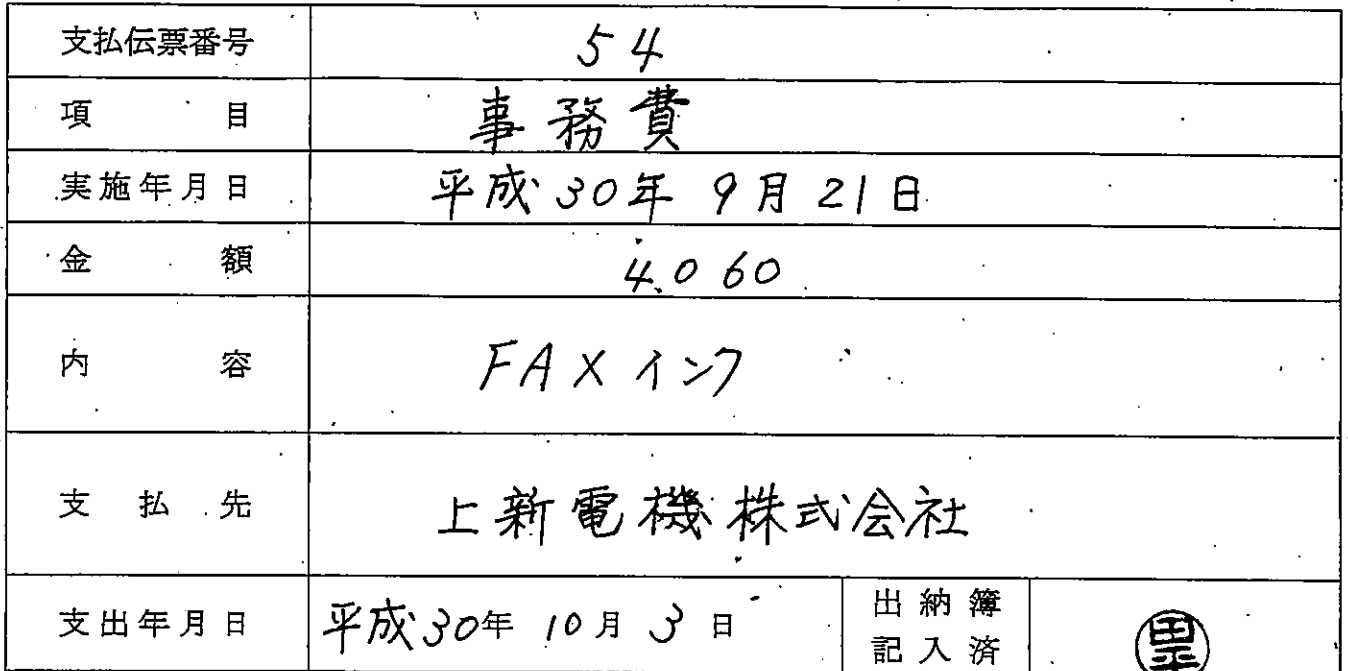 支払伝票番号 54
項目 事務費
実施年月日 平成30年 9月21日
金額 4,060
内容 FAXインク
支払先 上新電機株式会社
支出年月日 平成30年 10月 3日 出納簿
記入済